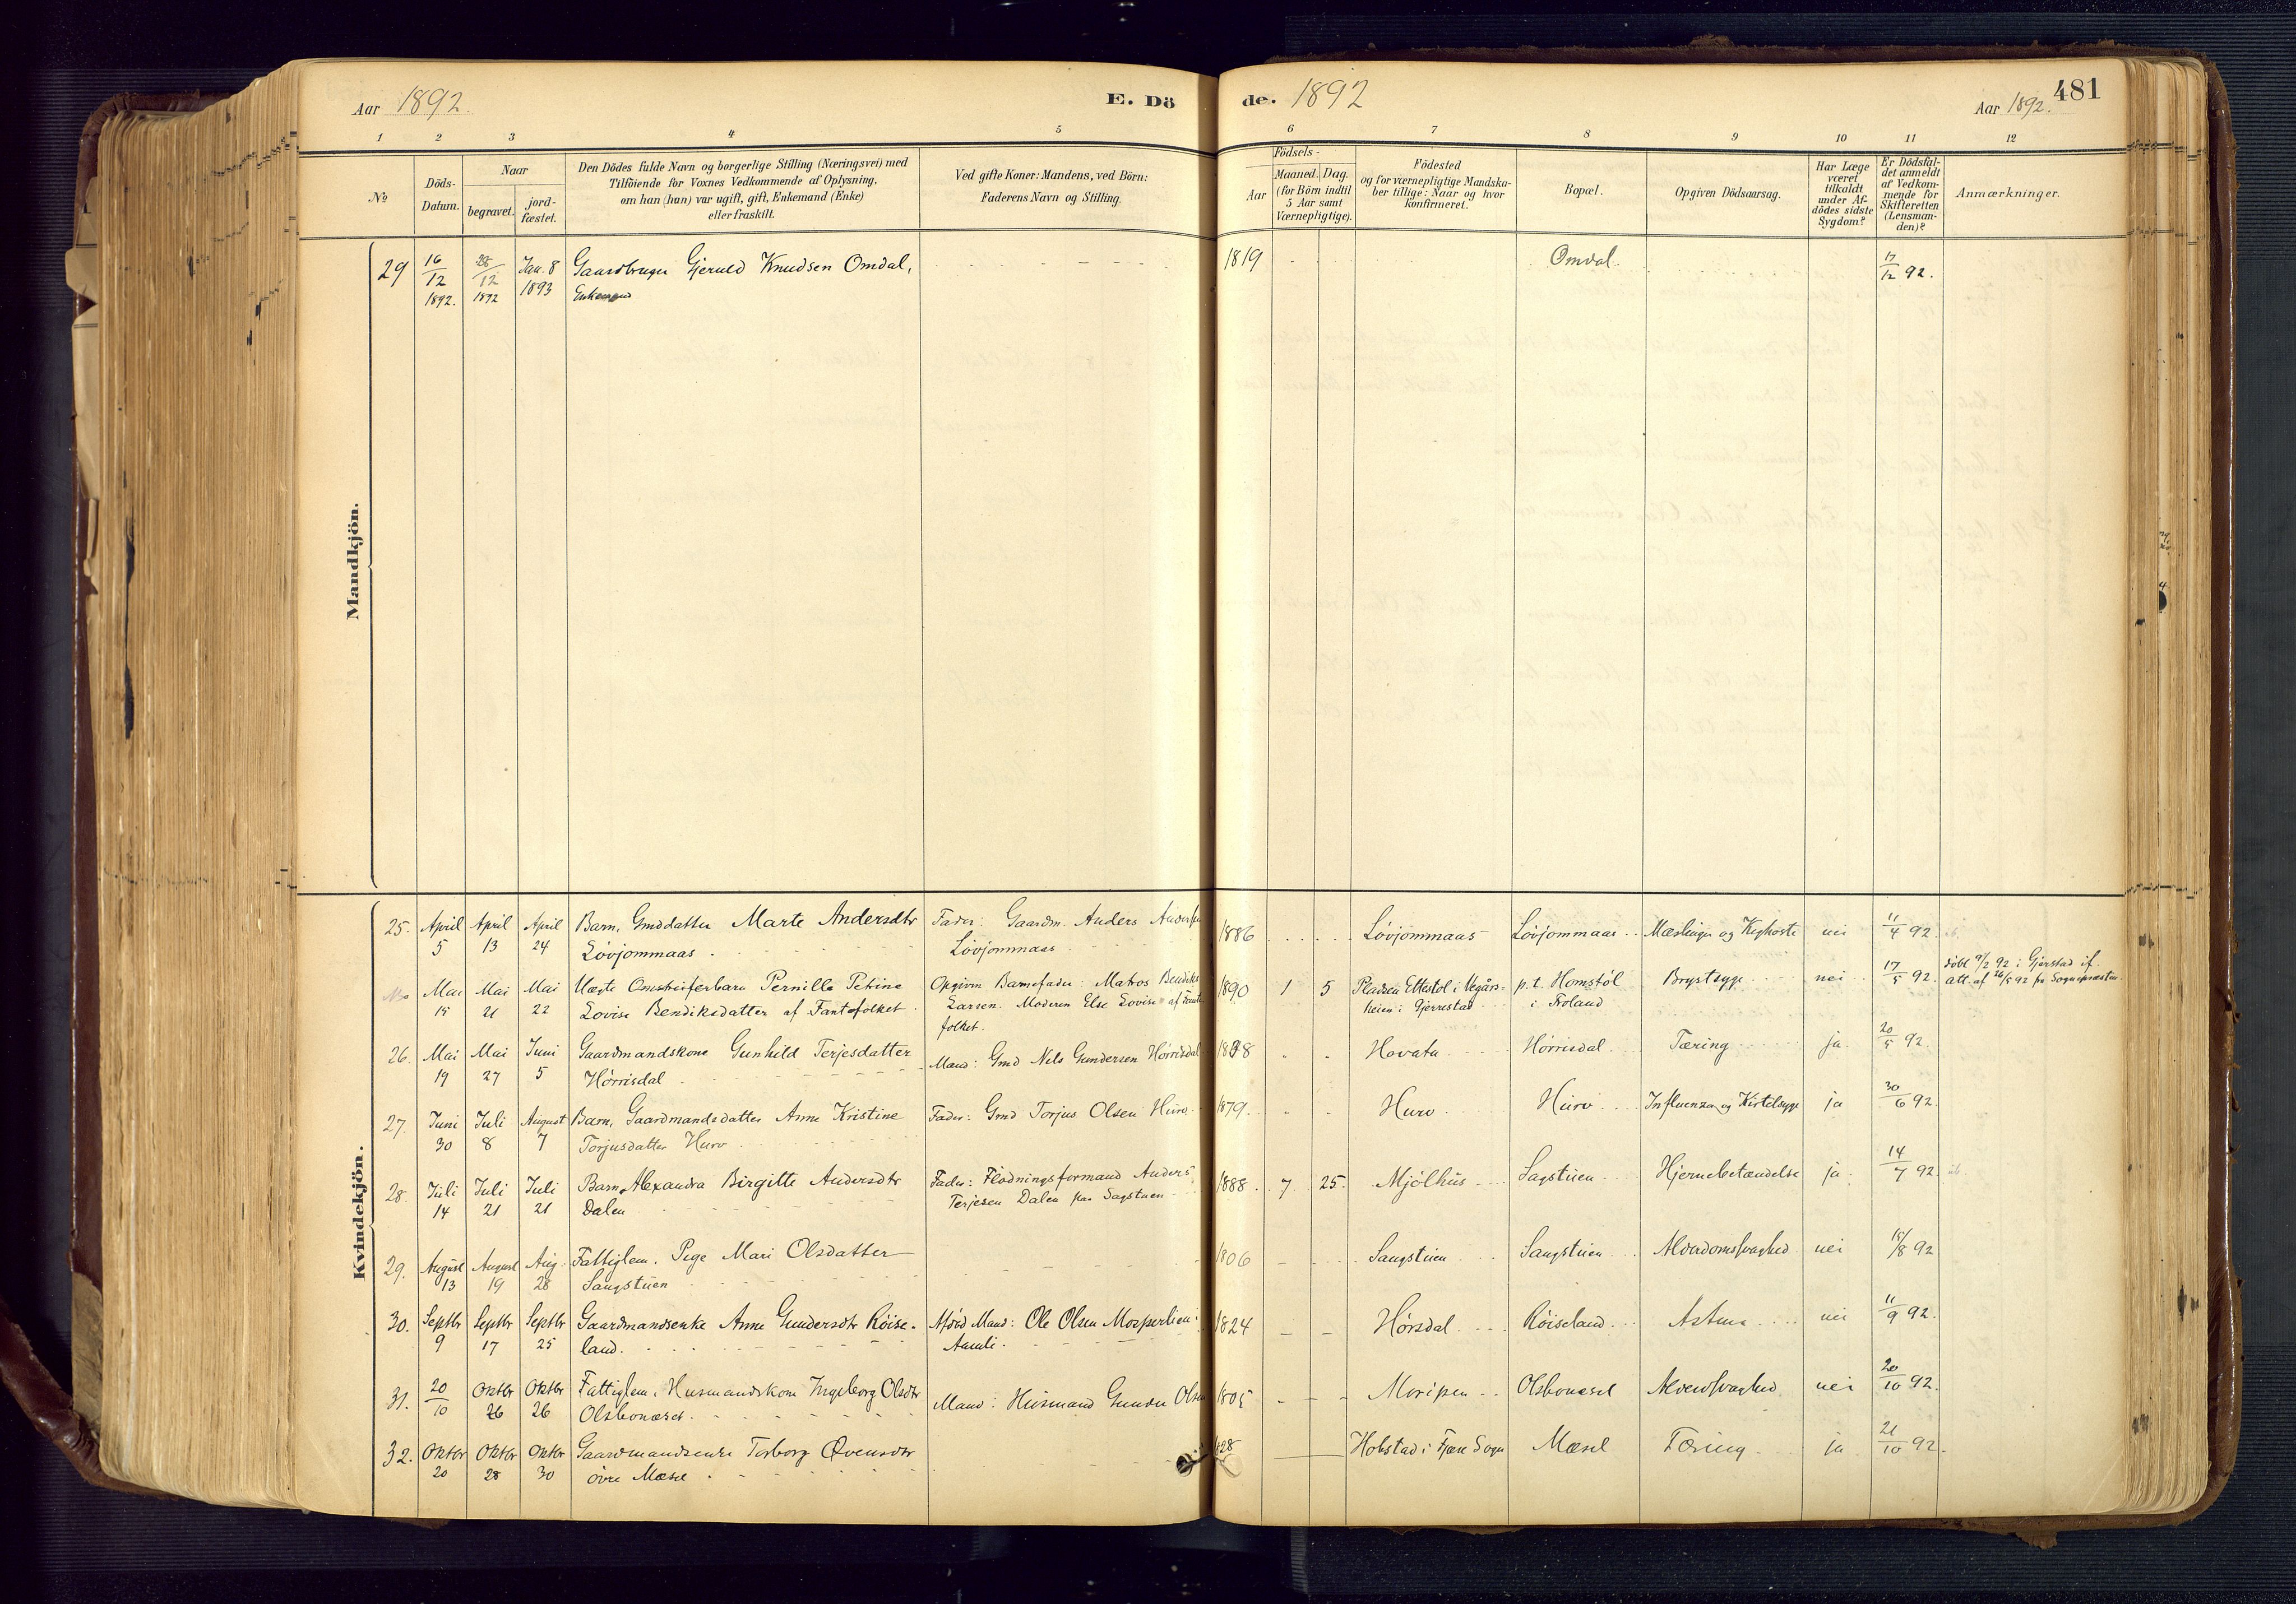 Aar 1892. E. Dö de. 1892 Aar 1892. 481
1 2 3 4 5 6 7 8 9 10 11 12
No
Döds-
Datum.
Naar
begravet.
jord-
fæstet.
Den Dödes fulde Navn og borgerlige Stilling (Næringsvei) med
Tilföiende for Voxnes Vedkommende af Oplysning,
om han (hun) var ugift, gift, Enkemand (Enke)
eller fraskilt.
Ved gifte Koner: Mandens, ved Börn:
Faderens Navn og Stilling.
Födsels-
Aar
Maaned. Dag.
(for Börn indtil
5 Aar samt
Værnepligtige).
Födested
og for værnepligtige Mandska-
ber tillige: Naar og hvor
konfirmeret.
Bopæl.
Opgiven Dödsaarsag.
Har Læge
været
tilkaldt
under Af-
dödes sidste
Sygdom?
Er Dödsfal-
det anmeldt
af Vedkom-
mende for
Skifteretten
(Lensman-
den)?
Anmærkninger.
Mandkjön.
29 16/12 28/12 Jan. 8 Gaardbruger Gjeruld Knudsen Omdal, 1819 Omdal 17/12 92.
1892. 1892 1893 Enkemand
Kvindekjön.
25. April April April Barn, Gmddatter Marte Andersdtr Fader: Gaardm. Anders 1886 Løvjommaas Løvjommaas Mæslinger og Kighoste nei 11/4 92.
5 13 24 Løvjommaas. Løvjommaas
Mai Mai Mai Uægte Omstreiferbarn Pernille Petrine Opgiven Barnefader: Matros Bendiks 1890 1 5 Pladsen Ettestøl i Vegårs- p.t. Homstøl Brystsyge nei 17/5 92. døbt 9/2 92 i Gjerstad if.
15 21 22 Lovise Bendiksdatter af Fantefolket Larsen. Moderen Else Lovise af Fante- heien i Gjerrestad i Froland att. af 26/5 92 fra Sognepræsten
folket.
26. Mai Mai Juni Gaardmandskone Gunhild Terjesdatter Mand: Gmd Nels Gundersen Hørrisdal Hovatn Hørrisdal Tæring ja 20/5 92.
19 27 5 Hørrisdal
27. Juni Juli August Barn, Gaardmandsdatter Anne Kristine Fader: Gmd Torjus Olsen Hurv 1879. Hurv Hurv Influenza og Kirtelsyge ja 30/6 92.
30 8 7 Torjusdatter Hurv
28. Juli Juli Juli Barn Alexandra Birgitte Andersdtr Fader: Flødningsformand Anders 1888. 7 25. Mjølhus Sagstuen Hjernebetændelse ja 14/7 92
14 21 21 Dalen Terjesen Dalen paa Sagstuen
29. August August Aug. Fattiglem. Pige Mari Olsdatter 1806 Saugstuen Saugstuen Alderdomssvaghed nei 15/8 92
13 19 28 Saugstuen
30. Septbr Septbr Septbr Gaardmandsenke Anne Gundersdtr Røise- Afdød Mand: Ole Olsen Mosperlien i 1824 Hørsdal Røiseland Astma nei 11/9 92.
9 17 25 land. Aamli.
31. 20/10 Oktbr Oktbr Fattiglem. Husmandskone Ingeborg Olsdtr Mand: Husmand Gunder Olsen 1805 Moripen Olsbonæset nei 20/10 92.
26 26 Olsbonæset
32. Oktbr Oktbr Oktbr Gaardmandsenke Torborg Øvensdtr 1828 Holstad i Fjære Sogn Mæsel Tæring ja 21/10 92.
20 28 30 øvre Mæsel